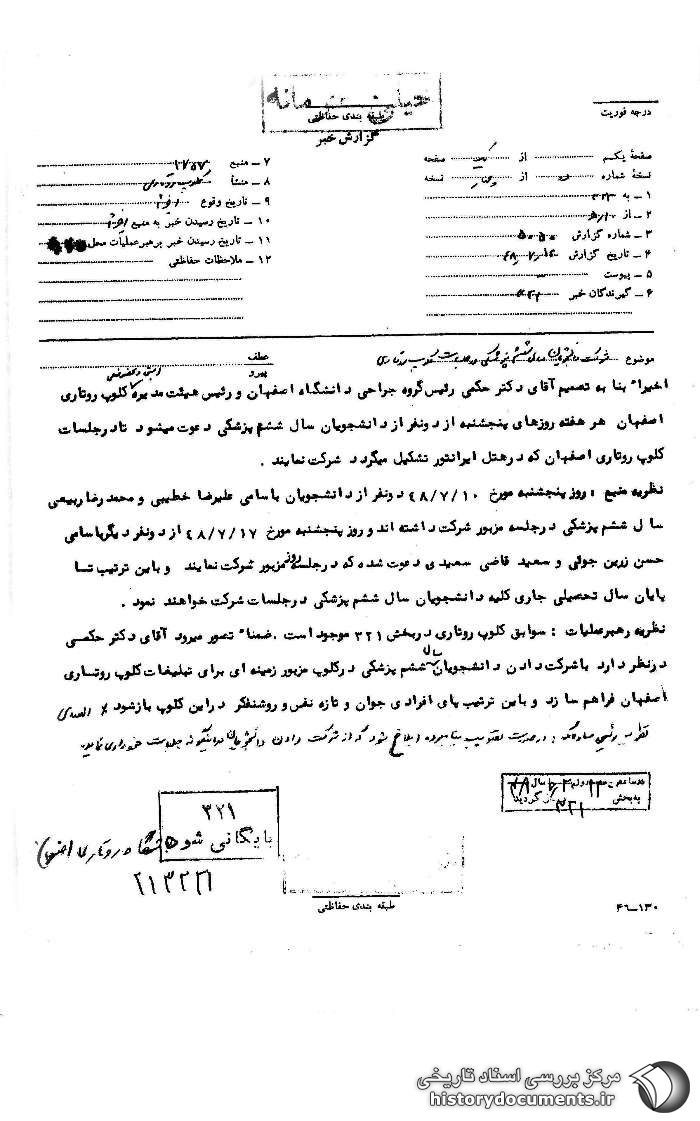 خیلی محرمانه
طبقه بندی حفاظتی
درجه فوریت
گزارش خبر
صفحه یکم از یک صفحه
نسخه شماره از نسخه
۱ ـ به
۲ ـ از
۳ ـ شماره گزارش
۴ ـ تاریخ گزارش
۵ ـ پیوست
۶ ـ گیرندگان خبر
۷ ـ منبع
۸ ـ منشأ کلوپ روتاری
۹ ـ تاریخ وقوع اخیراً
۱۰ ـ تاریخ رسیدن خبر به منبع اخیراً
۱۱ ـ تاریخ رسیدن خبر برهبر عملیات محل
۱۲ ـ ملاحظات حفاظتی
موضوع شرکت دانشجویان سال ششم پزشکی در جلسات کلوپ روتاری
عطف
پیرو
اخیراً بنا به تصمیم آقای دکتر حکمی رئیس گروه جراحی دانشگاه اصفهان و رئیس هیئت مدیره کلوپ روتاری
اصفهان هر هفته روزهای پنجشنبه از دونفر از دانشجویان سال ششم پزشکی دعوت میشود تادرجلسات
کلوپ روتاری اصفهان که درهتل ایرانتور تشکیل میگردد شرکت نمایند .
نظریه منبع : روز پنجشنبه مورخ ۴۸/۷/۱۰ دونفر از دانشجویان باسامی علیرضا خطیبی و محمدرضا ربیعی
سال ششم پزشکی درجلسه مزبور شرکت داشته اند و روز پنجشنبه مورخ ۴۸/۷/۱۷ از دونفر دیگر باسامی
حسن زرین جوئی و سعید قاضی سعیدی دعوت شده که درجلسه روز مزبور شرکت نمایند و باین ترتیب تا
پایان سال تحصیلی جاری کلیه دانشجویان سال ششم پزشکی درجلسات شرکت خواهند نمود .
نظریه رهبرعملیات : سوابق کلوپ روتاری دربخش ۳۲۱ موجود است .ضمناً تصور میرود آقای دکتر حکمی
درنظر دارد باشرکت دادن دانشجویان سال ششم پزشکی درکلوپ مزبور زمینه ای برای تبلیغات کلوپ روتاری
اصفهان فراهم سازد و باین ترتیب پای افرادی جوان و تازه نفس و روشنفکر دراین کلوپ بازشود
نظریه رئیس ساواک : درصورت تصویب بنامبرده ابلاغ شود که از شرکت دادن دانشجویان در اینگونه جلسات خودداری نماید.
به بخش ۳۲۱
۳۲۱
بایگانی شود
باشگاه روتاری اصفهان
۲۱۳۲۲۱
طبقه بندی حفاظتی
۴۶ـ۱۳۰
مرکز بررسی اسناد تاریخی
historydocuments.ir